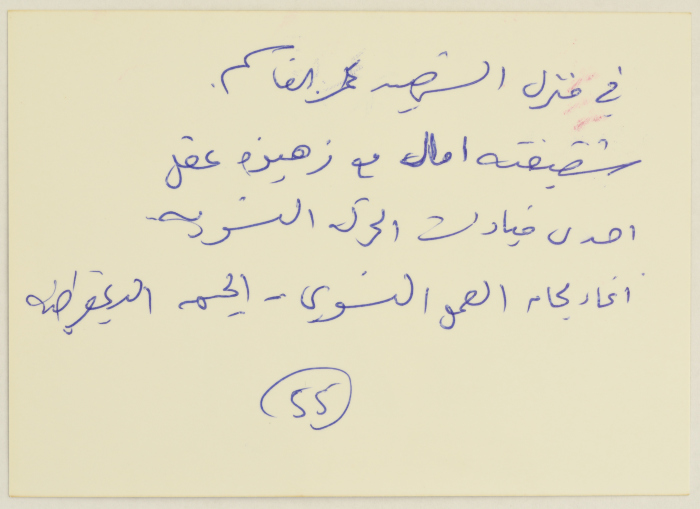 في منزل الشهيد عمر القاسم.
شقيقته امال مع زهيرة عقل
احدى قيادات الحركة النسوية
اتحاد لجان العمل النسوي - الجبهة الديمقراطية
55